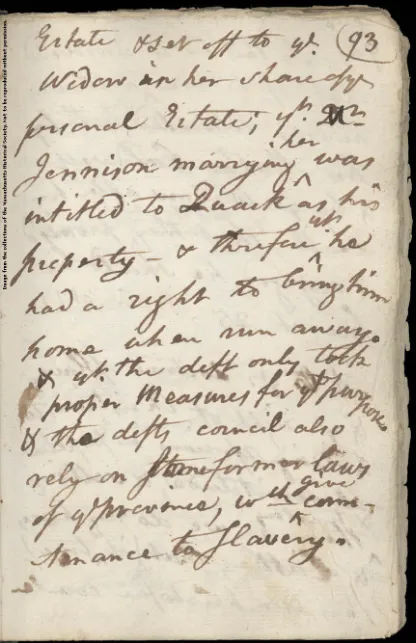 Estate & set off to ye. 93
Widow in her share of ye
personal Estate; yt. Mr
Jennison marrying her was
intitled to Quack as his
property - & threfore yt. he
had a right to bring him
home when run away.
& yt. the deft only took
proper Measures for yt purpose
& the defts council also
rely on some former laws
of ye province, wch give coun-
tenance to Slavery.
Image from the collections of the Massachusetts Historical Society, not to be reproduced without permission.